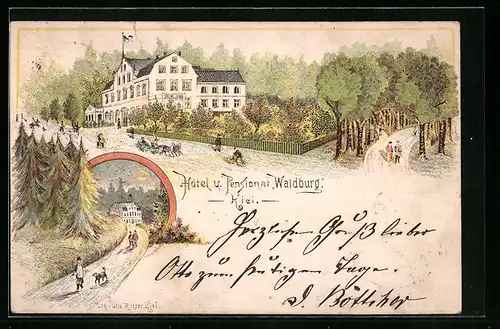 Hôtel u. Pensionat "Waldburg".
— Kiel. —
Herzlichen Gruß lieber
Otto zum heutigen Tage.
D. Böttcher
Lith. v. Otto Richter, Kiel.